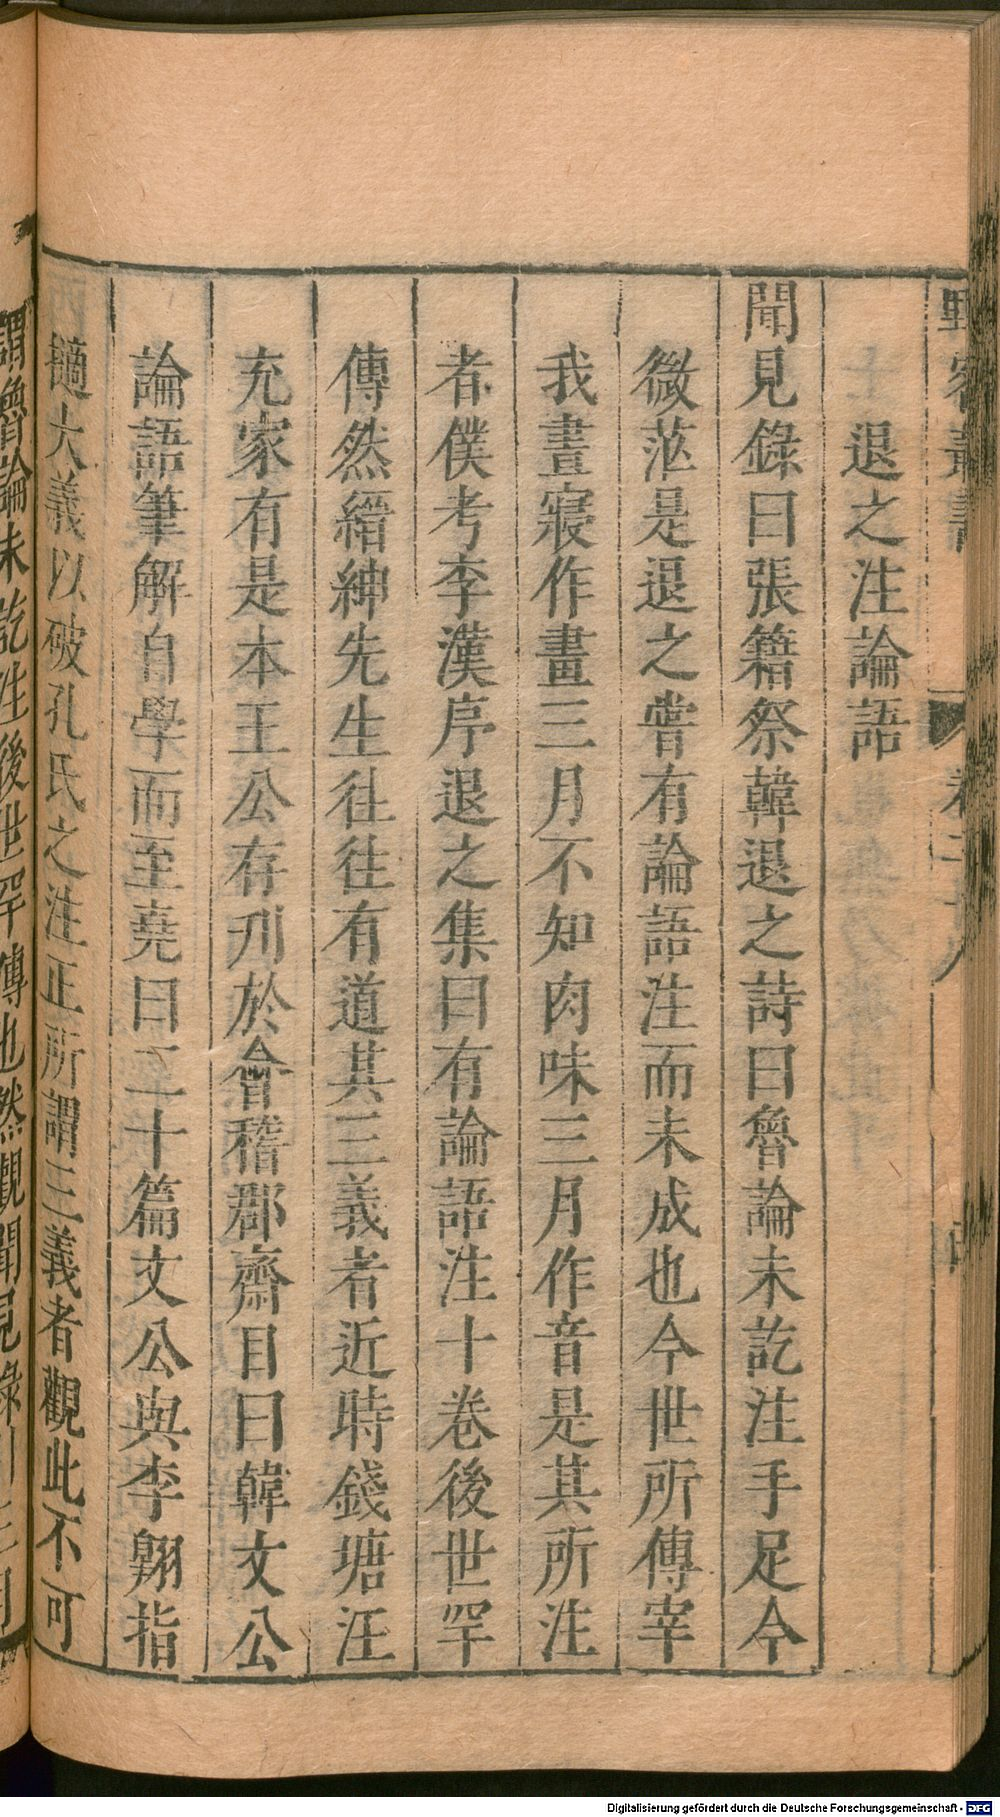 野客叢書 卷二十八 四
退之注論語
聞見錄曰張籍祭韓退之詩曰魯論未訖注手足今
微茫是退之嘗有論語注而未成也今世所傳宰
我晝寢作畫三月不知肉味三月作音是其所注
者僕考李漢序退之集曰有論語注十卷後世罕
傳然縉紳先生往往有道其三義者近時錢塘汪
充家有是本王公存刋於會稽郡齋目曰韓文公
論語筆解自學而至堯曰二十篇文公與李翱指
擿大義以破孔氏之注正所謂三義者觀此不可
謂魯論未訖注後世罕傳也然觀聞見錄引三月
Digitalisierung gefördert durch die Deutsche Forschungsgemeinschaft - DFG